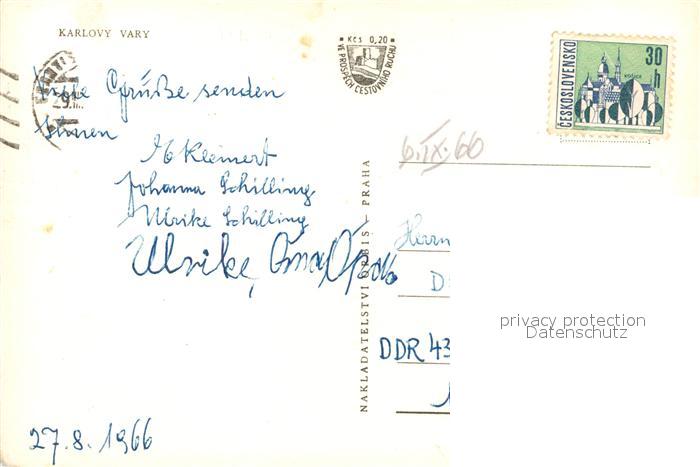 KARLOVY VARY
Kčs 0,20
VE PROSPĚCH CESTOVNÍHO RUCHU
ČESKOSLOVENSKO
30 h
KOŠICE
Grüße senden
Ihnen
Kleinert
Johanna Schilling
Ulrike Schilling
Ulrike,
6.IX.66
NAKLADATELSTVÍ ORBIS – PRAHA
Herrn
D
DDR 43
privacy protection
Datenschutz
27.8.1966